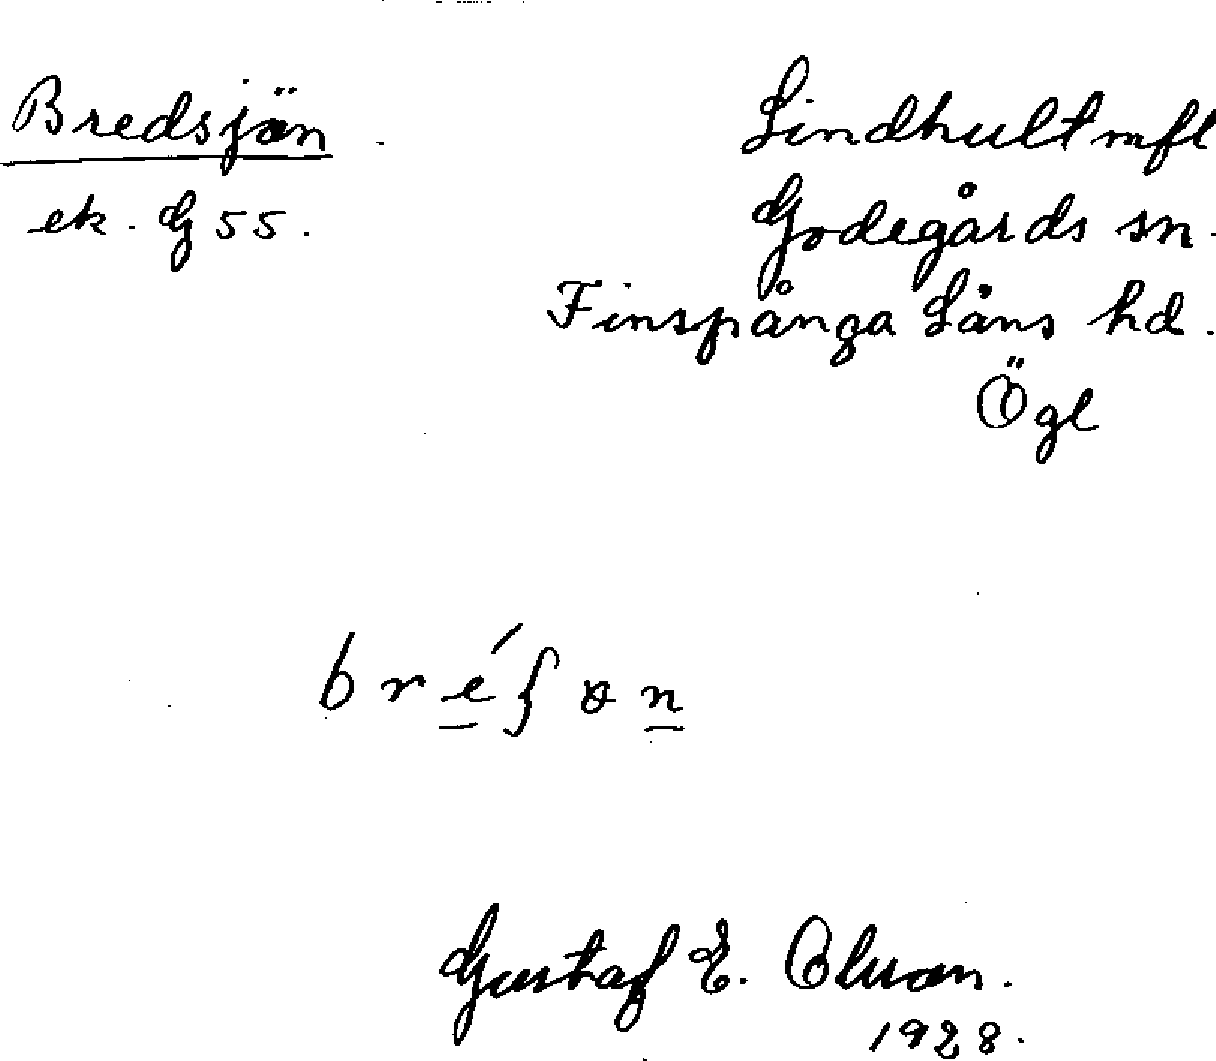 Bredsjön
ek. G 55.
Lindhult mfl
Godegårds sn.
Finspånga Läns hd.
Ögl
Gustaf E.
1928.